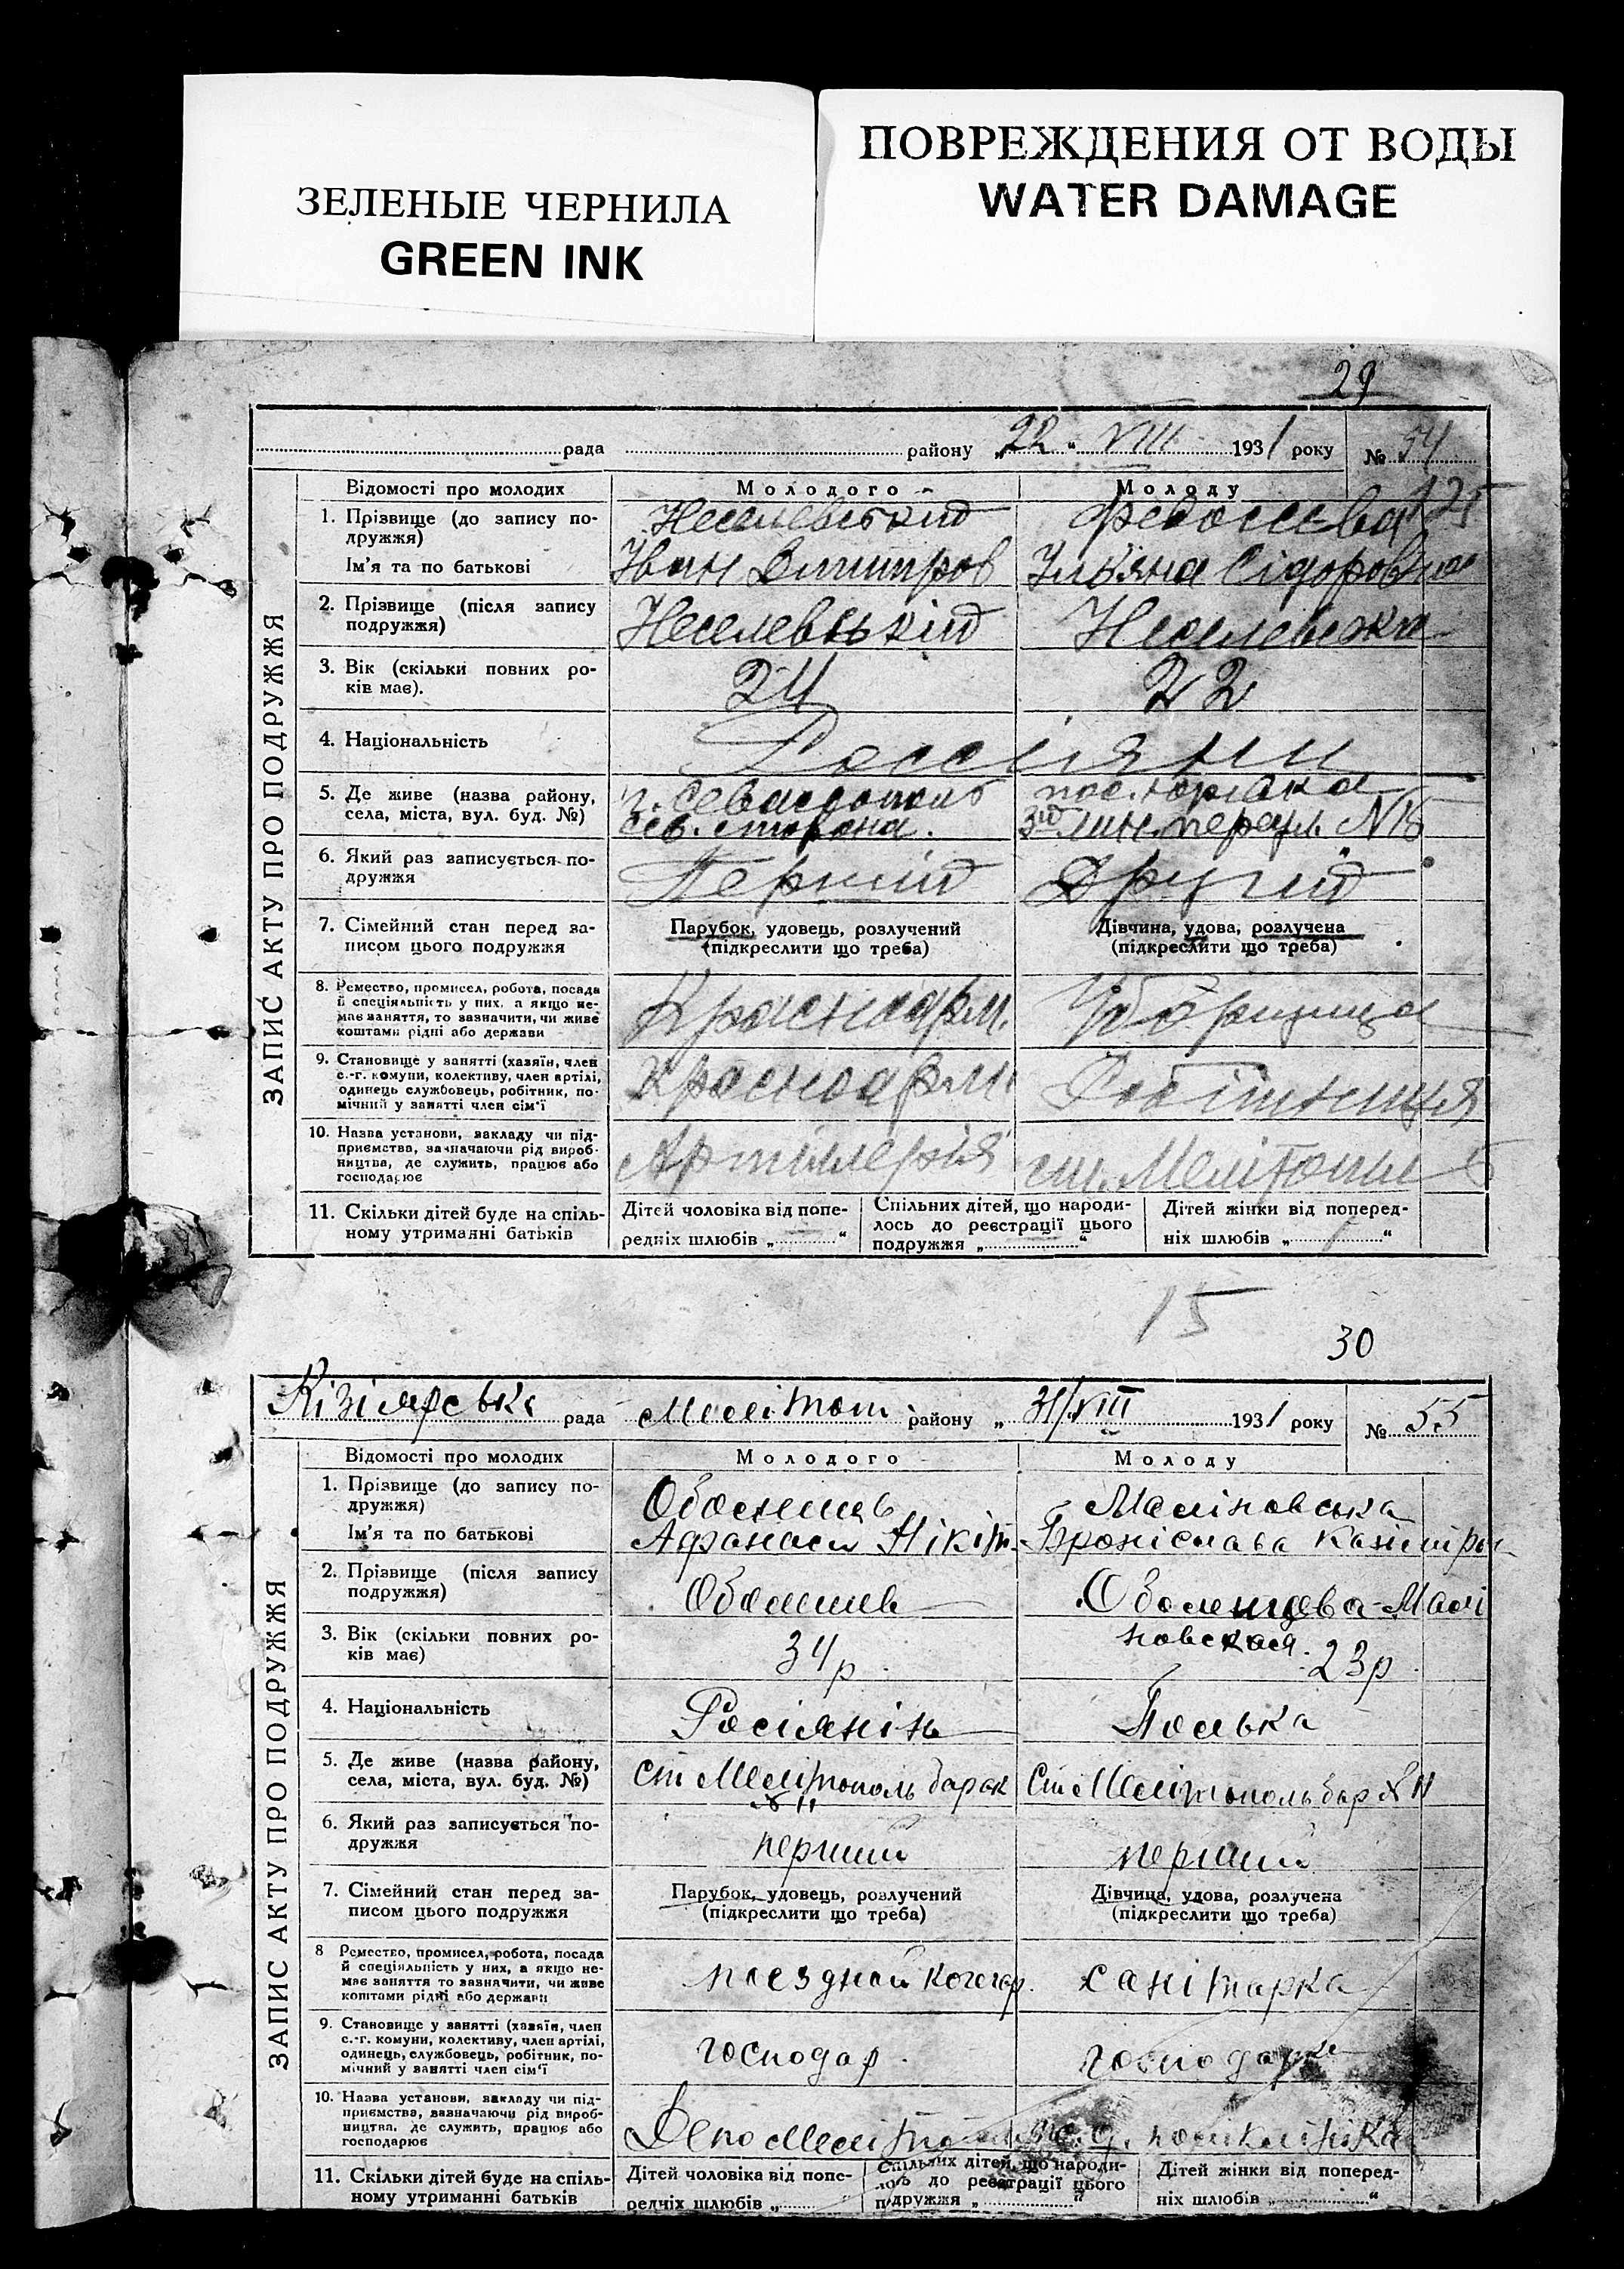 ЗЕЛЕНЫЕ ЧЕРНИЛА
GREEN INK
ПОВРЕЖДЕНИЯ ОТ ВОДЫ
WATER DAMAGE
29
рада району „22“ VIII 1931 року № 54
ЗАПИС АКТУ ПРО ПОДРУЖЖЯ
Відомості про молодих Молодого Молоду 125
1. Прізвище (до запису по-
дружжя)
Неселевській Федосєєва
Ім'я та по батькові Іван Дмитров Ульяна Сідоровна
2. Прізвище (після запису
подружжя)
Неселевській Неселевська
3. Вік (скільки повних ро-
ків має).
24 22
4. Національність Россіяни
5. Де живе (назва району,
села, міста, вул. буд. №)
г. Севастополь
сев. сторона. 3й лин. переул. №
6. Який раз записується по-
дружжя
Перший Другий
7. Сімейний стан перед за-
писом цього подружжя
Парубок, удовець, розлучений
(підкреслити що треба)
Дівчина, удова, розлучена
(підкреслити що треба)
8. Ремество, промисел, робота, посада
й спеціяльність у них, а якщо не-
має заняття, то зазначити, чи живе
коштами рідні або держави
Красноарм. Уборщица
9. Становище у занятті (хазяїн, член
с.-г. комуни, колективу, член артілі,
одинець службовець, робітник, по-
мічний у занятті член сім'ї
Красноарм Робітниця
10. Назва установи, закладу чи під-
приємства, зазначаючи рід вироб-
ництва, де служить, працює або
господарює
Артилерія ст. Мелітополь
11. Скільки дітей буде на спіль-
ному утриманні батьків
Дітей чоловіка від попе-
редніх шлюбів „ “
Спільних дітей, що народи-
лось до реєстрації цього
подружжя „ “
Дітей жінки від поперед-
ніх шлюбів „ “
15
30
Кізіярська рада Меліtoп району „31/VIII 1931 року № 55
ЗАПИС АКТУ ПРО ПОДРУЖЖЯ
Відомості про молодих Молодого Молоду
1. Прізвище (до запису по-
дружжя)
Маліновська
Ім'я та по батькові Афанасій Нікіт. Броніслава Казімірівн
2. Прізвище (після запису
подружжя)
Оболенцева-Малі
новская
3. Вік (скільки повних ро-
ків має)
34р 23р.
4. Національність Росіянінь Полька
5. Де живе (назва району,
села, міста, вул. буд. №)
Ст Мелітополь барак Ст Мелітополь бар № 11
№ 11
6. Який раз записується по-
дружжя
перший перший
7. Сімейний стан перед за-
писом цього подружжя
Парубок, удовець, розлучений
(підкреслити що треба)
Дівчина, удова, розлучена
(підкреслити що треба)
8 Ремество, промисел, робота, посада
й спеціяльність у них, а якщо не-
має заняття то зазначити, чи живе
коштами рідні або держави
поездной кочегар. санітарка
9. Становище у занятті (хазяїн, член
с.-г. комуни, колективу, член артілі,
одинець, службовець, робітник, по-
мічний у занятті член сім'ї
господар. господарка
10. Назва установи, закладу чи під-
приємства, зазначаючи рід вироб-
ництва, де служить, працює або
господарює
Депо Меліtoп поліклініка
11. Скільки дітей буде на спіль-
ному утриманні батьків
Дітей чоловіка від попе-
редніх шлюбів „ “
Спільних дітей, що народи-
лось до реєстрації цього
подружжя „ “
Дітей жінки від поперед-
ніх шлюбів „ “